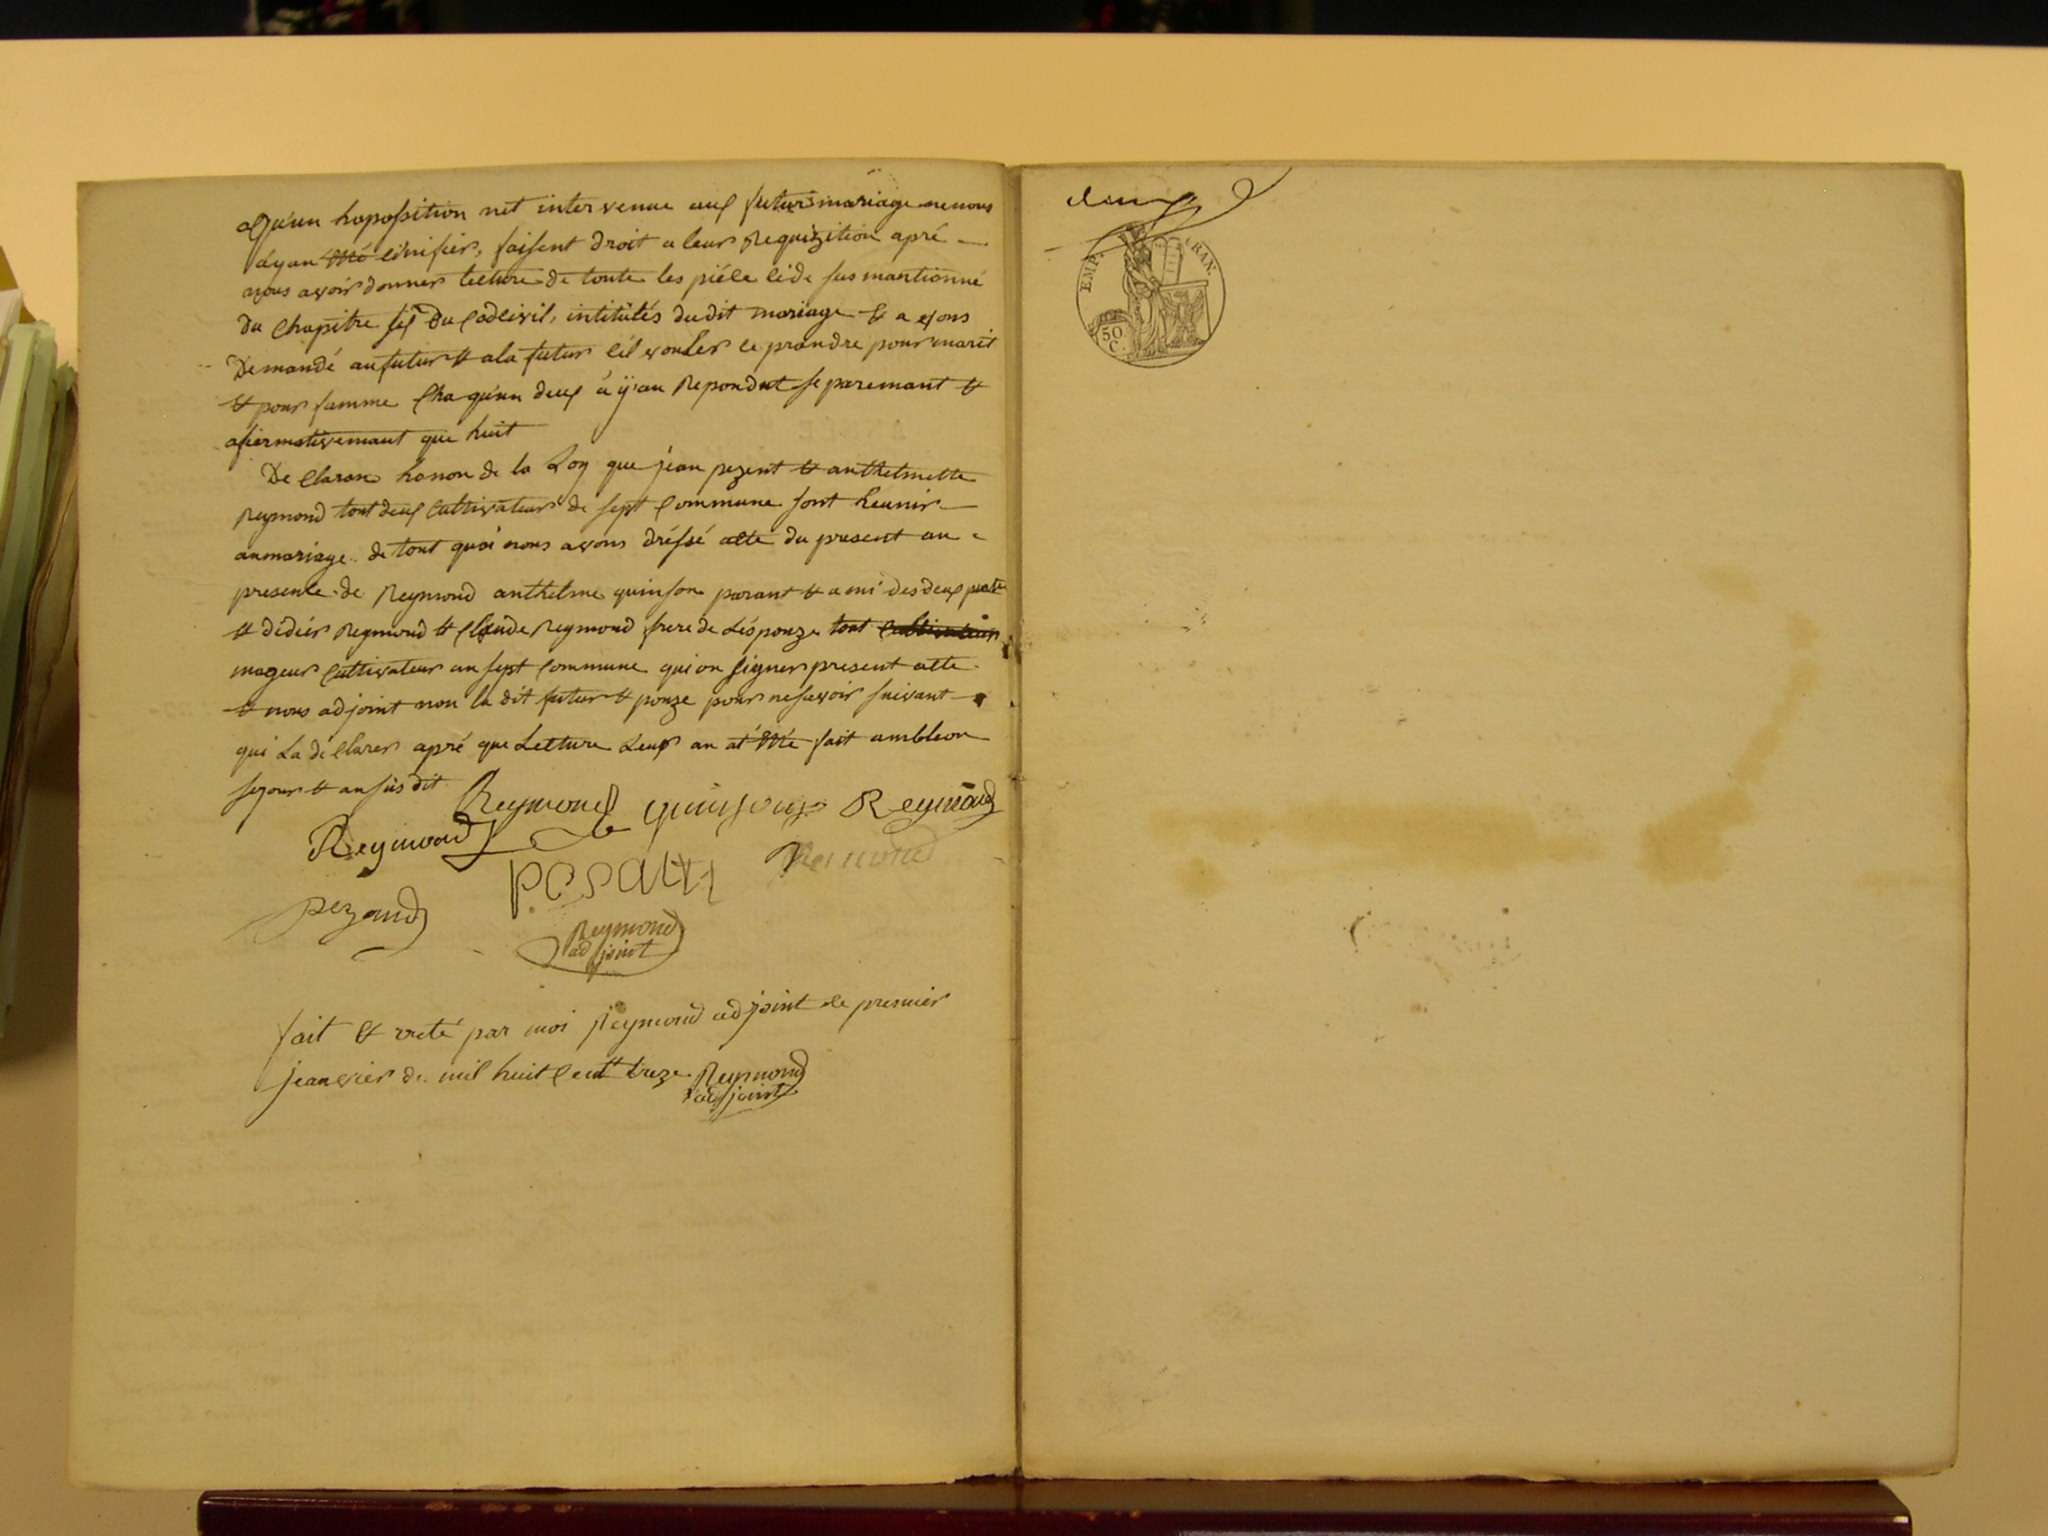 aqu'un hopossition n'et intervenue aux futur mariage ne nous
ayan été sinifier, faisent droit a leur Requizition apré
nous avoir donner lecture de toute les piéce cide sus mantionné
Du Chapitre six Du Codcivil, intitulés du dit mariage & a vons
Demandé au futur & a la futur s'il vouler ce prandre pour marit
& pour famme Chaqu'un deux à ÿ an Repondut separemant &
afiermativemant que huit
De Claron honon de la Loy que jean pezent & anthelmette
Reymond tout deux Cultivateur de sept Commune sont heunir
an mariage de tout quoi nous avons dréssé acte du present an
presence de Reymond anthelme quinson parant & ami des deux parte
& didier Reymond & Claude Reymond frere de L'ésponze tout
mageur Cultivateur an sept Commune qui on signer present acte
& nous adjoint non la dit futur & ponze pour ne savoir suivant
qui La de Clarer apré que Lecture Leux an at été fait ambleon
sejour & an sus dit
Reymond quinson Reymond
Reymond
pesant Reymond
pezand
Reymond
adjoint
fait & areté par moi Reymond adjoint le premier
jeanvier de mil huit Cent treze Reymond
adjoint
EMP. FRAN.
50
C.